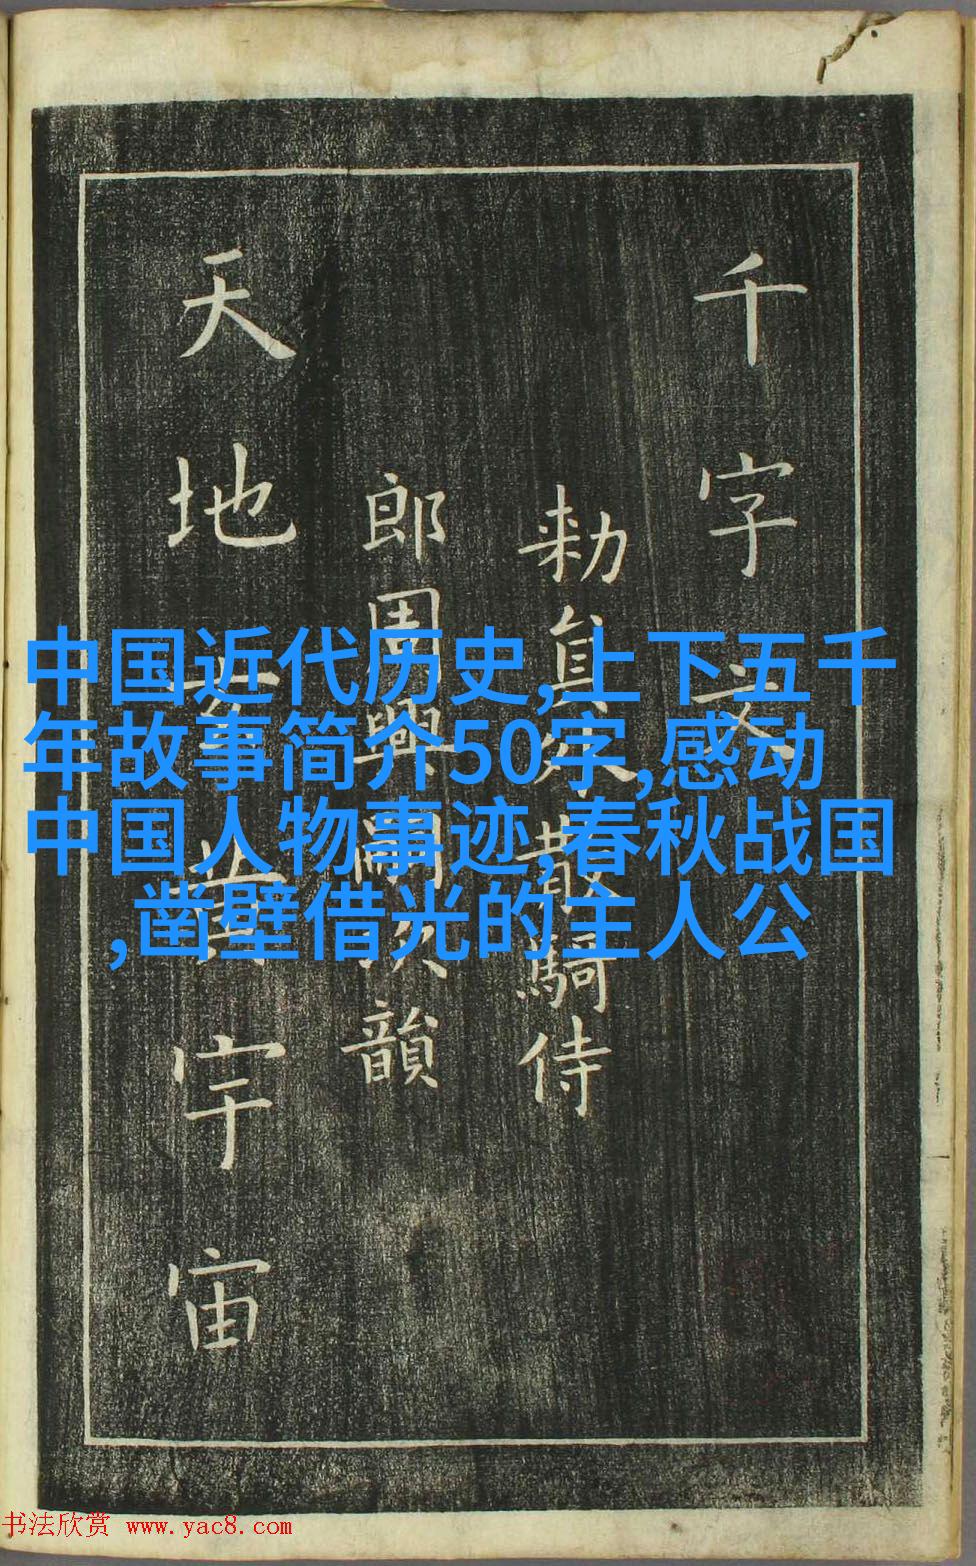 千字文
勅員外散騎侍
郎周興嗣次韻
天地玄黃宇宙
中国近代历史,上下五千
年故事简介50字,感动
中国人物事迹,春秋战国
,凿壁借光的主人公
书法欣赏 www.yac8.com